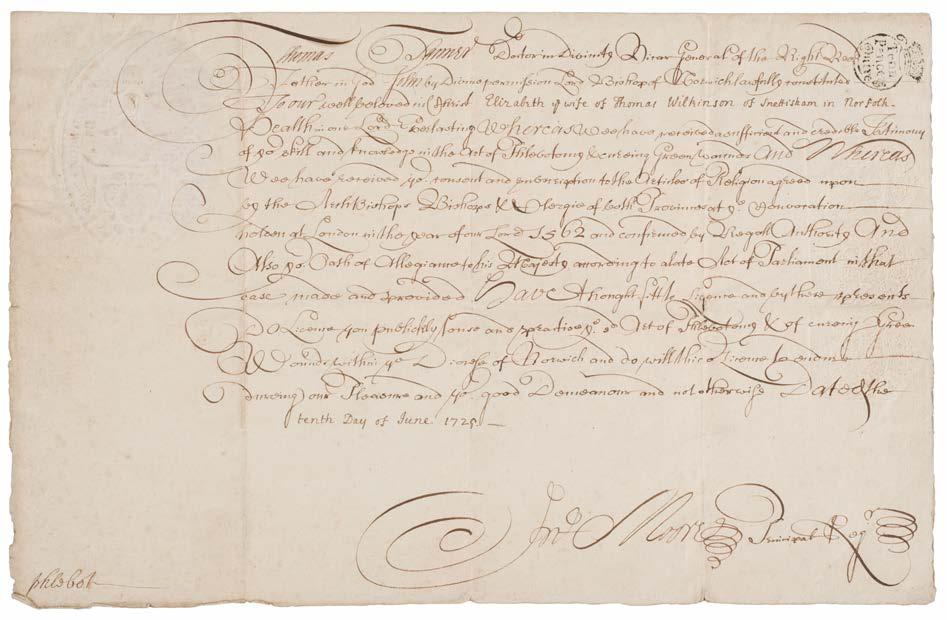 Thomas Tanner Doctor in Divinity Vicar General of the Right Revd
Father in God John by Divine permission Lord Bishop of Norwich lawfully constituted
To our wellbeloved in Christ Elizabeth ye wife of Thomas Wilkinson of Snettisham in Norfolk
Health in our Lord Everlasting Whereas Wee have received a sufficient and credible Testimony
of yor skill and knowledge in the Art of Phlebotomy & cureing Green wounds And Whereas
Wee have received yor consent and subscription to the Articles of Religion agreed upon
by the ArchBishops Bishops & Clergie of both Provinces at ye Convocation
holden at London in the year of our Lord 1562 and confirmed by Regall Authority And
Also yor Oath of Allegiance to his Majesty according to a late Act of Parliament in that
case made and provided Have thought fitt to License and by these presents
Do License you publickly to use and practice ye sd Art of Phlebotomy & of cureing Green
Wounds within ye Diocese of Norwich and do will this License to endure
dureing our Pleasure and yor good Demeanour and not otherwise Dated the
tenth Day of June 1725
Jno Moore Principal Regr
phlebot